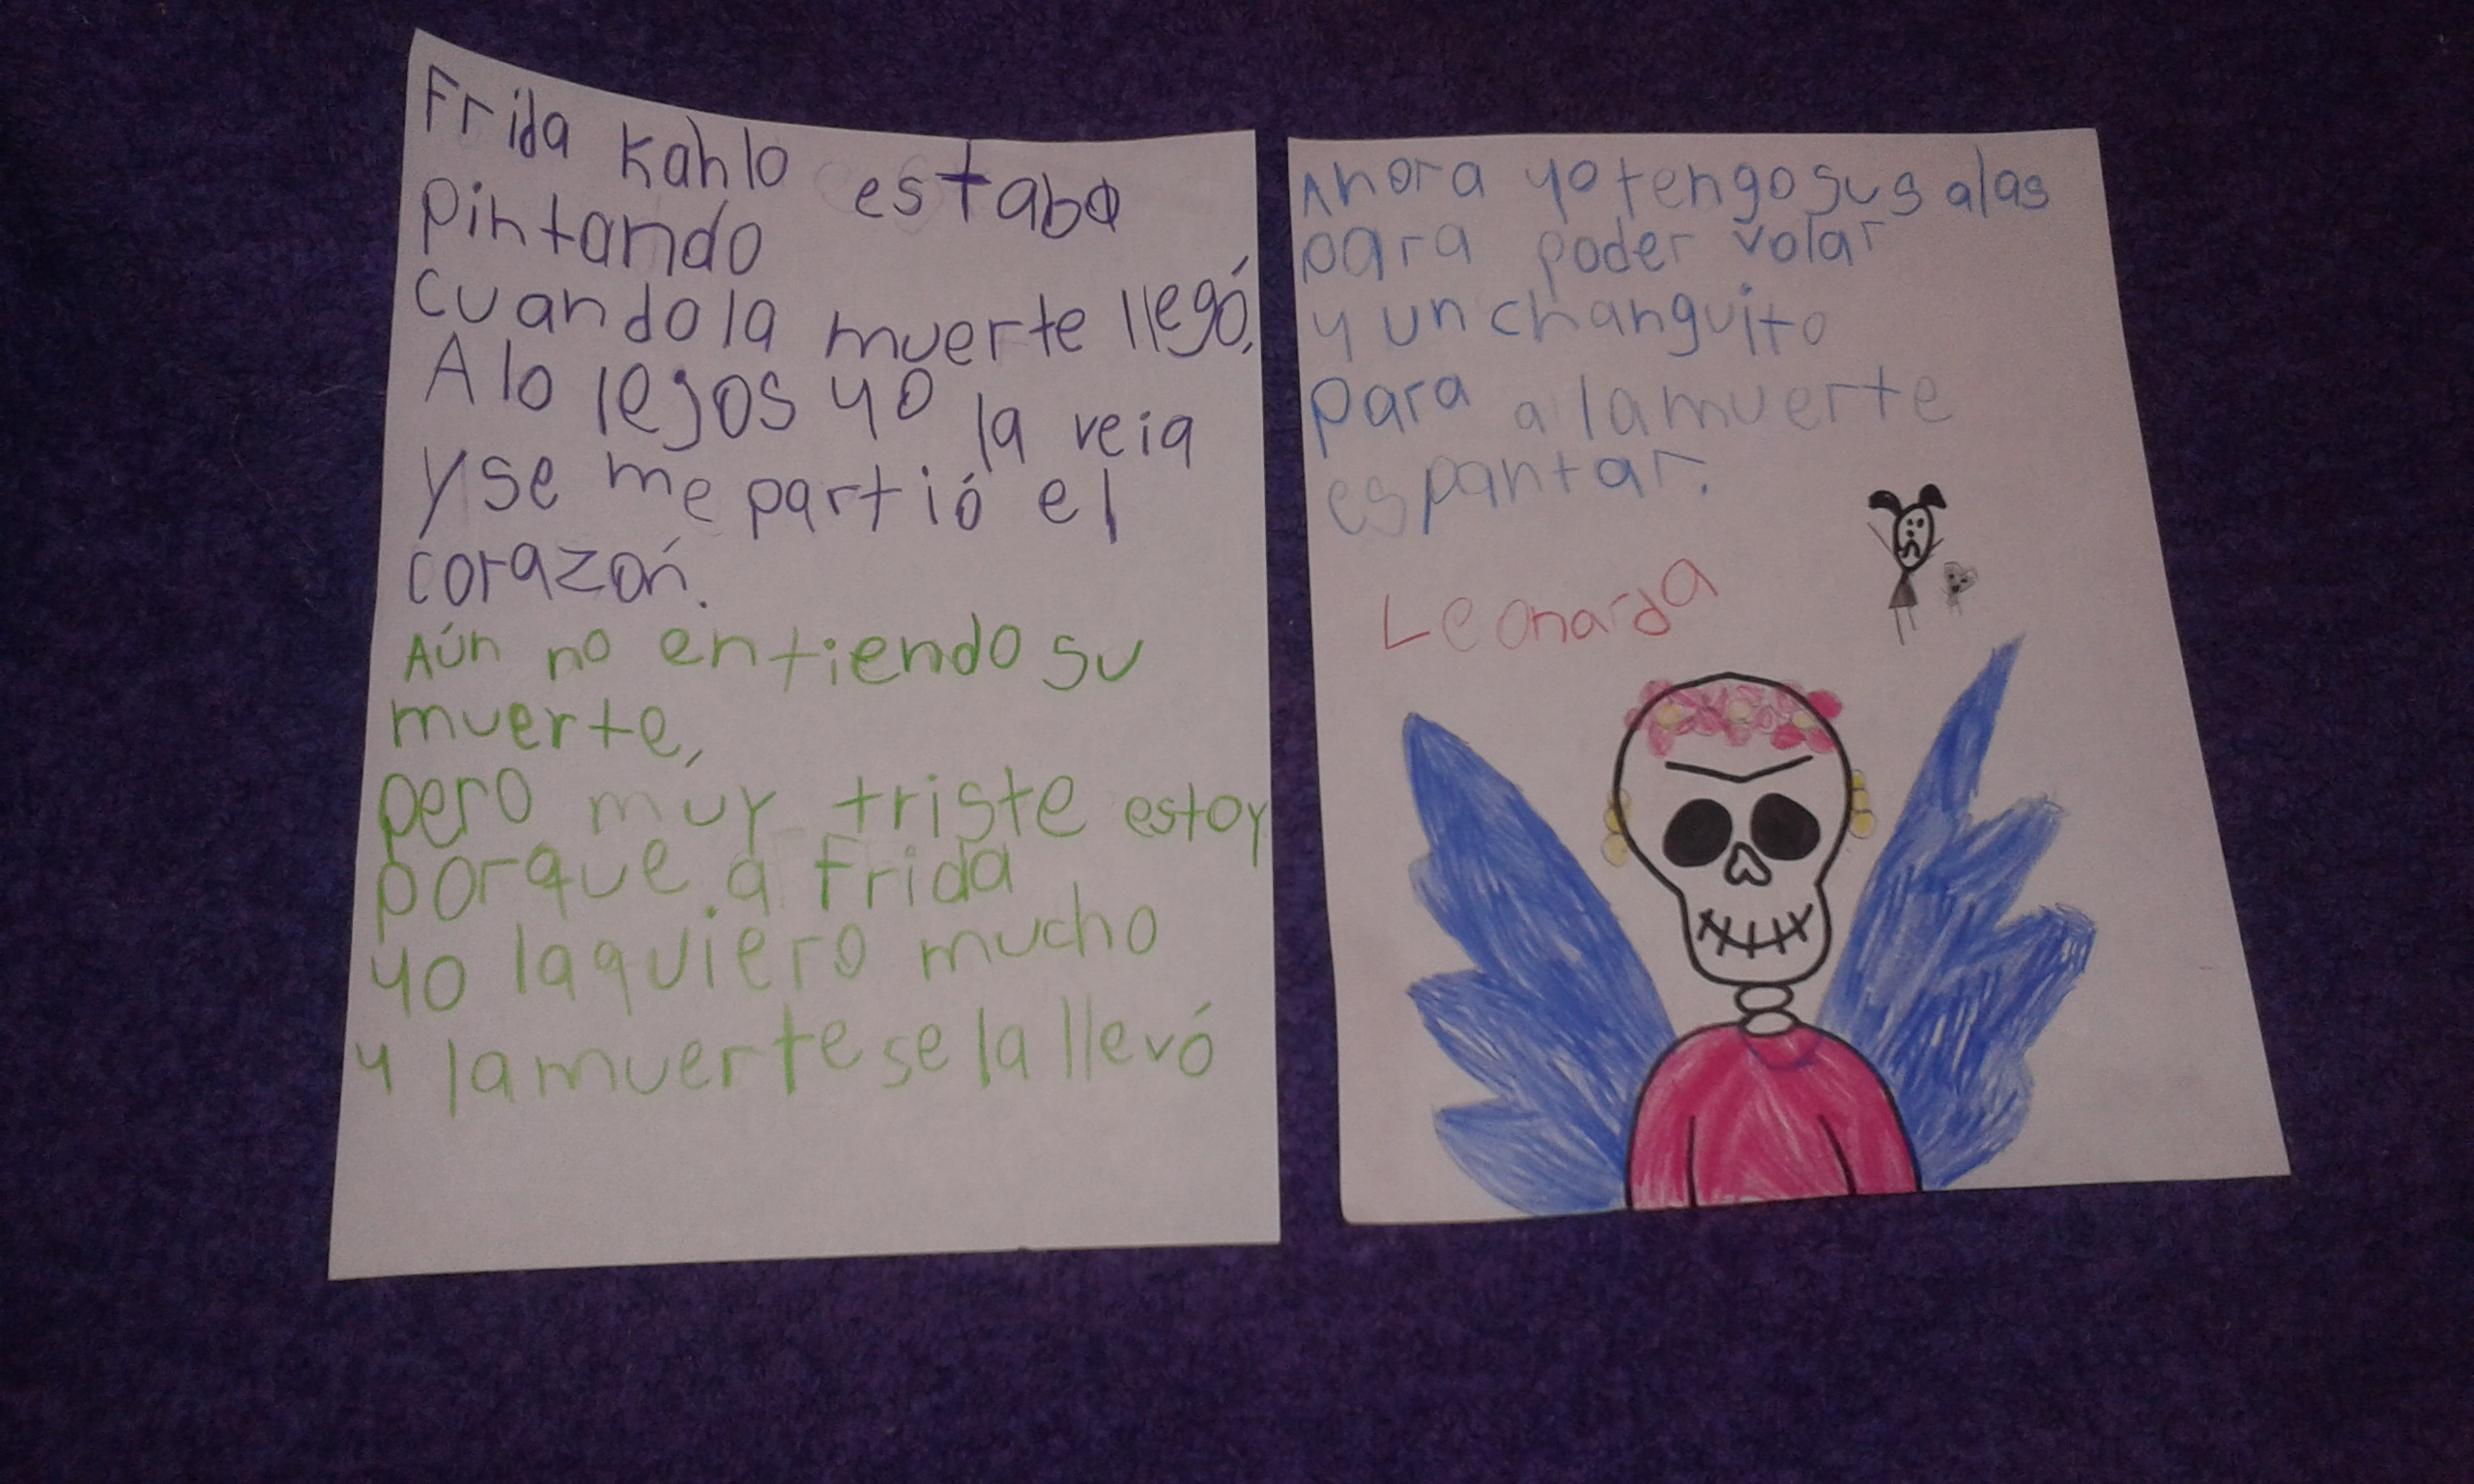 Frida Kahlo estaba
pintando
cuando la muerte llegó,
A lo lejos yo la veia
y se me partió el
corazón.
Aún no entiendo su
muerte,
pero muy triste estoy
porque a Frida
yo la quiero mucho
y la muerte se la llevó
Ahora yo tengo sus alas
para poder volar
y un changuito
para a la muerte
espantar.
Leonarda